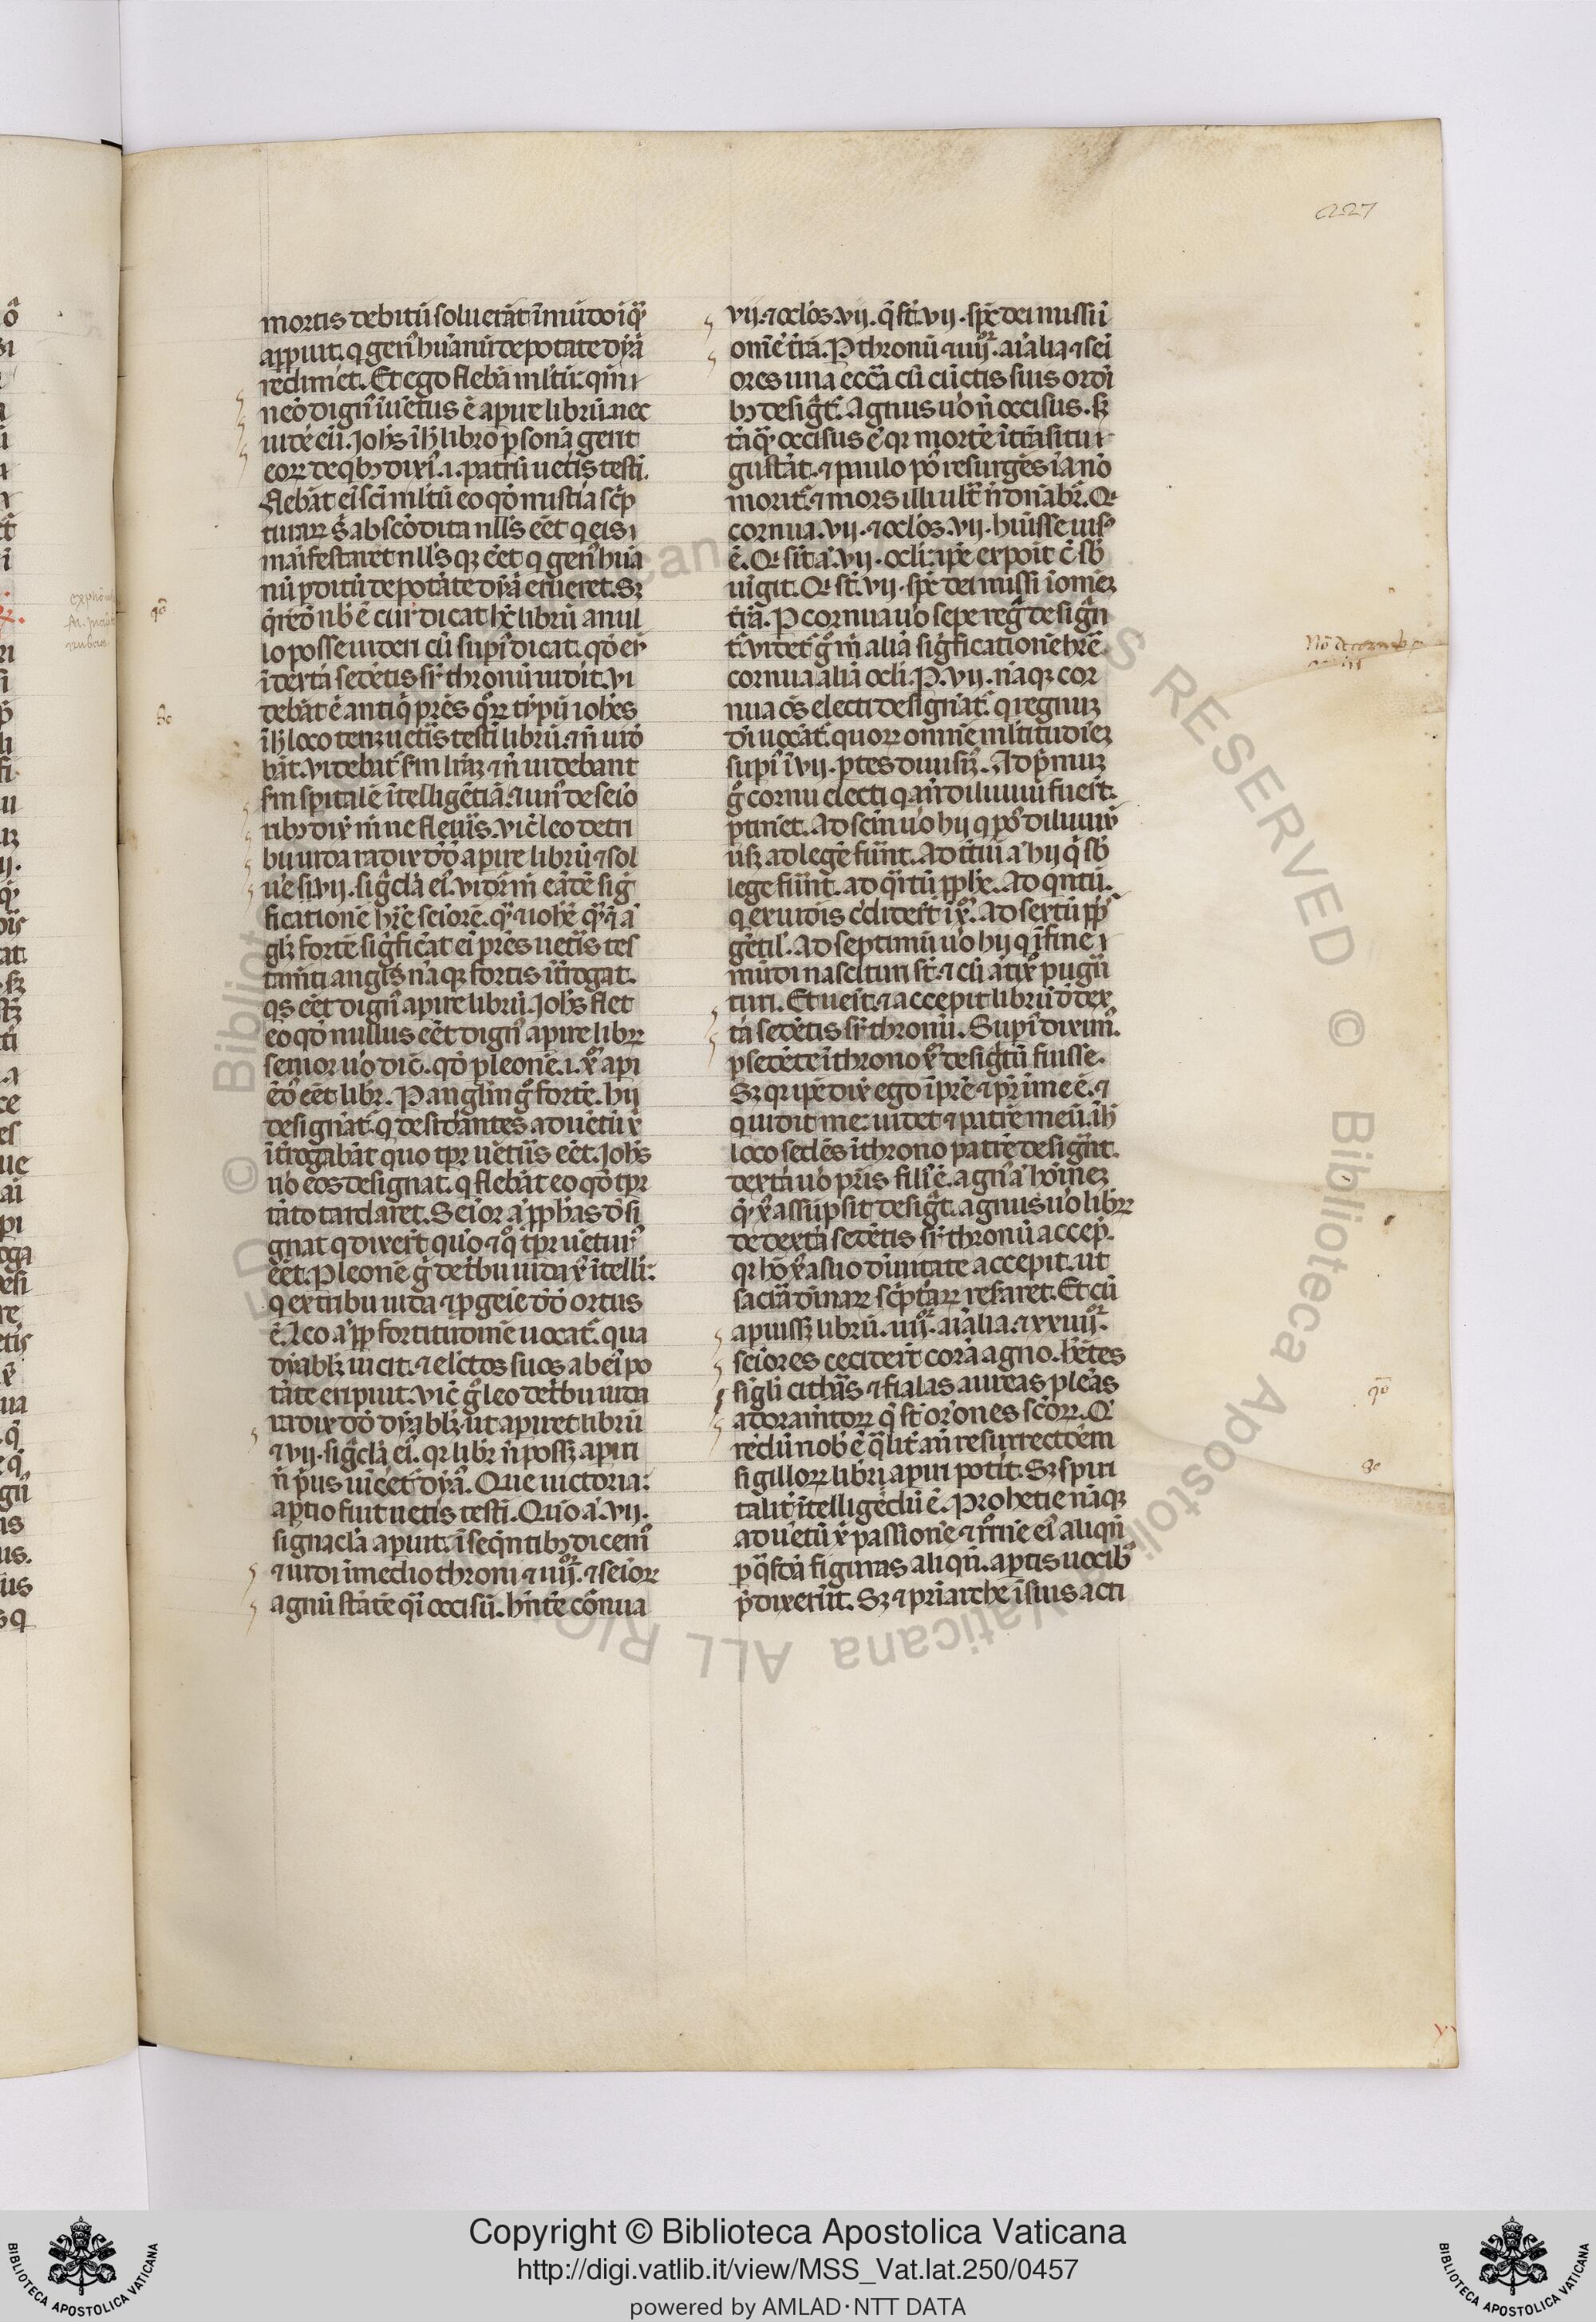 227
mortis debitū soluerāt ī mūdo iq̄ꝫ
apꝑuit. q genꝰ humanū de potate dyā
redimet. Et ego flebā mltū: qm i
neo dignꝰ īuētus ē aꝑire librū. nec
uidē eū. Johs ī h libro ꝑsonā gerit
eoꝝ de qbꝫ dixi .i. patrū uetis testi.
flebāt eī sci mltū eo qđ mistia sc̄p
turaꝝ s̄ abscōdita nlls eēt q eis i
maīfestaret nlls qꝫ eēt q genꝰ hūa
nū ꝑditū de potate dyā erueret. Sꝫ
q̄ređ nb ē cur dicat hͨ librū a nul
lo posse uideri cū supͥ dicat. qđ eū
ī dextā sedētis sr thronū uidit. Vi
debāt ē antiq̄ pres q̄ꝝ typū iohes
ī h loco tenꝫ uetis testi librū. ⁊ n̄ uid
bāt. Videbāt scdm lrāꝫ ⁊ n̄ uidebant
scdm spitalē ītelligētiā. ⁊ unꝰ de seio
ribꝫ dix̄ m̄ ne fleuis. Vic̄ leo de tri
bu iuda radix dđ aꝑire librū ⁊ sol
ue si .vii. sigcla eiꝰ. Vidr m̄ eādē sig
ficationē hre seiorē. q̄ꝫ ⁊ iohē q̄ꝫ ⁊ ā
glꝫ fortē sigficāt eī pres uetis tes
tamti angls nāqꝫ fortis īt̄rogat.
qs eēt dignꝰ aꝑire librū. Johs flet
eo qđ nullus eēt dignꝰ aꝑire libꝝ
senior uo dic̄. qđ ꝑ leonē .i. xp̄ apͥ
eđ eēt libr. P anglm ḡ fortē. hij
designāt. q desidantes aduētū x̄
īt̄rogabāt quo tpr uētus eēt. Johs
uo eos designat. q flebāt eo qđ tpr
tāto tardaret. Seior ā pphas dsi
gnat q dixert quo ⁊ qͦ tpr uēturꝰ
eēt. P leonē ḡ de tbu iuda x̄ ītelli:
q ex tribu iuda ⁊ pgeie dđ ortus
ē. Leo ā pp fortitudinē uocat. qua
dyablꝫ uicit. ⁊ elctos suos ab eiꝰ po
tate eripuit. Vic̄ ḡ leo de tbu iuda
radix dđ dyablꝫ. ut aꝑiret librū
⁊ vii. sigcla eiꝰ. qr libr n̄ possꝫ aꝑiri
n̄ pus uicēt dyā. Que uictoria:
aꝑtio fuit uetis testi. Quo ā. vii.
signacla aꝑuit. ī seqntibꝫ dicemꝰ
⁊ uidi ī medio throni ⁊ iiij. ⁊ seioꝝ
agnū stātē qͥ occisū. hntē cornua
vij. ⁊ oclos. vij. q̄ st. vij. spc̄ dei missi ī
omē trā. P thronū ⁊ iiijor. aīalia ⁊ sei
ores una eccā cū cūctis suis ordi
bꝫ desigt. Agnus uo n̄ occisus. sꝫ
tāqꝫ occisus ē. qr mortē ī trāsitu i
gustāt. ⁊ paulo pꝰ resurgēs iā nō
morit. ⁊ mors illi ult̄ n̄ dn̄abr. Qͥ
cornua. vij. ⁊ oclos. vij. huisse uisꝰ
ē. Qͥ sit ā. vij. ocli: ipe expoit c̄ sb
uīgit. Qͥ st. vij. spc̄ dei missi ī omeꝫ
trā. P cornua uo sepe regā desigū
t. videt ḡ m̄ aliā sigficationē hrē
cornua aliā ocli. P. vij. nāqꝫ cor
nua os electi designāt. q regnuꝫ
dī uocāt. quoꝝ omnē mltitudieꝫ
supͥ ī vij. ꝑtes diuisꝫ. Ad pmuꝫ
ḡ cornu electi q an̄ diluuiū fuerūt.
ꝑtinēt. Ad scdm uo hij q pꝰ diluuiū
usqꝫ ad legē fiūt. Ad tciū ā hij q̄ sb
lege fiūt. ad q̄rtū pphe. Ad qntū.
q ex iudis credidert ī xp̄. Ad sextū pp
gētil. Ad septimū uo hij q ī fine i
mūdi nascituri st. ⁊ cū ātix̄ pugn
turi. Et uenit. ⁊ accepit librū d̄ dex
tā sedētis sr thronū. Supͥ diximꝰ.
ꝑ sedētē ī throno x̄ desigtū fuisse.
Sꝫ qr ipe dix̄ ego ī pre ⁊ pr ī me ē. ⁊
q uidit me: uidet ⁊ patrē meū. ī h
loco sedēs ī throno patrē desigt.
dextā uo pris filꝰ ē. agnꝰ ā hoīneꝫ
q̄ x̄ assūpsit desigt. agnus uo libꝝ
de dextā sedētis sr thronū accep.
qr hō x̄ a suo diuitate accepit. ut
sacrā dinaꝝ sc̄ptaꝝ resaret. Et cū
aꝑuissꝫ librū. iiijor. aīalia. ⁊ xxiiijor.
seiores ceciderūt corā agno. hntes
sigli cithas ⁊ fialas aureas pleās
adoramtoꝝ q̄ st orones scoꝝ. Qͥ
redūnob ē q̄lit an̄ resurrectōem
sigilloꝝ libri aꝑiri potit. Sꝫ spiri
talit ītelligēdū ē. Prophetie nāqꝫ
aduētū x̄ passionē ⁊ rōnē eiꝰ aliqn
ꝑ q̄sdā figuras aliqn. aꝑtis uocibꝰ
p̄dixerūt. Sꝫ ⁊ priarche ī suis acti
qo
so
qo
so
Copyright © Biblioteca Apostolica Vaticana
http://digi.vatlib.it/view/MSS_Vat.lat.250/0457
powered by AMLAD·NTT DATA
BIBLIOTECA APOSTOLICA VATICANA
BIBLIOTECA APOSTOLICA VATICANA
© Biblioteca Apostolica Vaticana ALL RIGHTS RESERVED